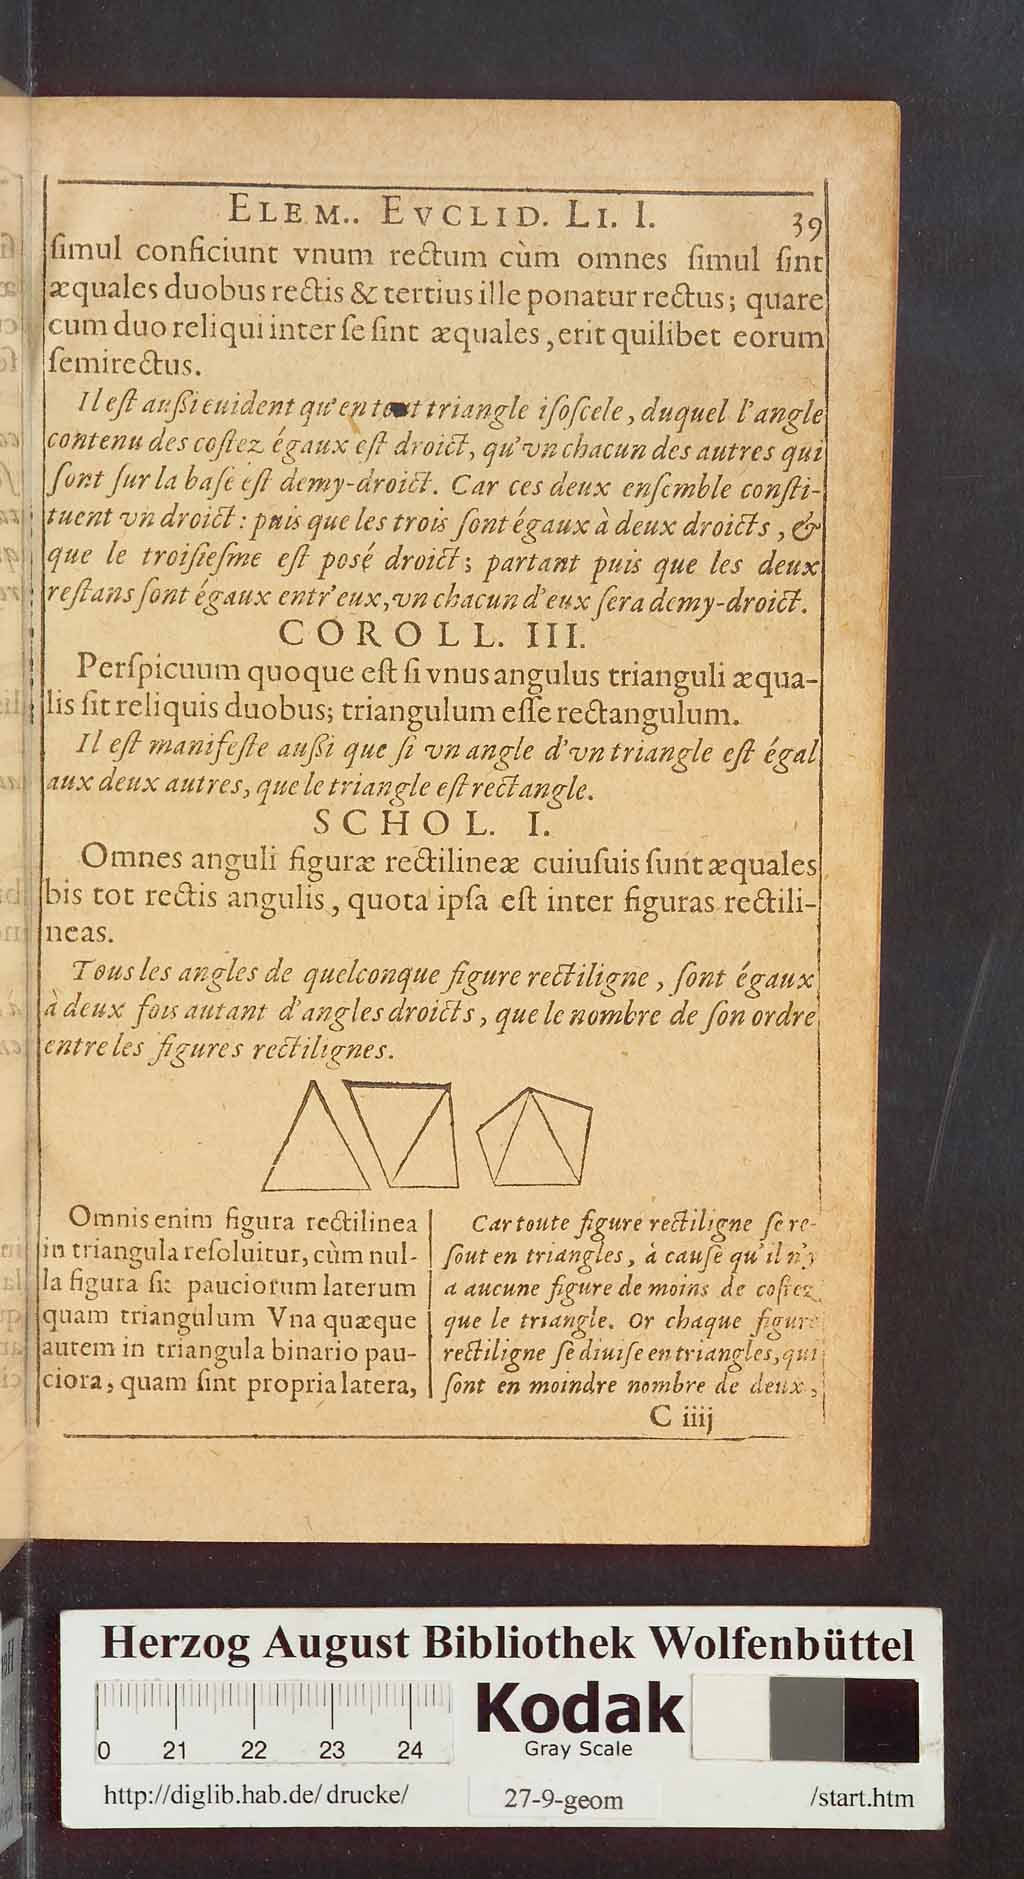 ELEM.. EVCLID. LI. I. 39
ſimul conficiunt vnum rectum cùm omnes ſimul ſint
æquales duobus rectis & tertius ille ponatur rectus; quare
cum duo reliqui inter ſe ſint æquales, erit quilibet eorum
ſemirectus.
Il eſt auſſi euident qu'en tout triangle iſoſcele, duquel l'angle
contenu des coſtez égaux eſt droict, qu'vn chacun des autres qui
ſont ſur la baſe eſt demy-droict. Car ces deux enſemble conſti-
tuent vn droict: puis que les trois ſont égaux à deux droicts, &
que le troiſieſme eſt posé droict; partant puis que les deux
reſtans ſont égaux entr'eux, vn chacun d'eux ſera demy-droict.
COROLL. III.
Perſpicuum quoque eſt ſi vnus angulus trianguli æqua-
lis ſit reliquis duobus; triangulum eſſe rectangulum.
Il eſt manifeſte auſſi que ſi vn angle d'vn triangle eſt égal
aux deux autres, que le triangle eſt rectangle.
SCHOL. I.
Omnes anguli figuræ rectilineæ cuiuſuis ſunt æquales
bis tot rectis angulis, quota ipſa eſt inter figuras rectili-
neas.
Tous les angles de quelconque figure rectiligne, ſont égaux
à deux fois autant d'angles droicts, que le nombre de ſon ordre
entre les figures rectilignes.
Omnis enim figura rectilinea
in triangula reſoluitur, cùm nul-
la figura ſit pauciorum laterum
quam triangulum Vna quæque
autem in triangula binario pau-
ciora, quam ſint propria latera,
Car toute figure rectiligne ſe re-
ſout en triangles, à cauſe qu'il n'y
a aucune figure de moins de coſtez
que le triangle. Or chaque figure
rectiligne ſe diuiſe en triangles, qui
ſont en moindre nombre de deux,
C iiij
Herzog August Bibliothek Wolfenbüttel
0 21 22 23 24
Kodak
Gray Scale
http://diglib.hab.de/drucke/ 27-9-geom /start.htm